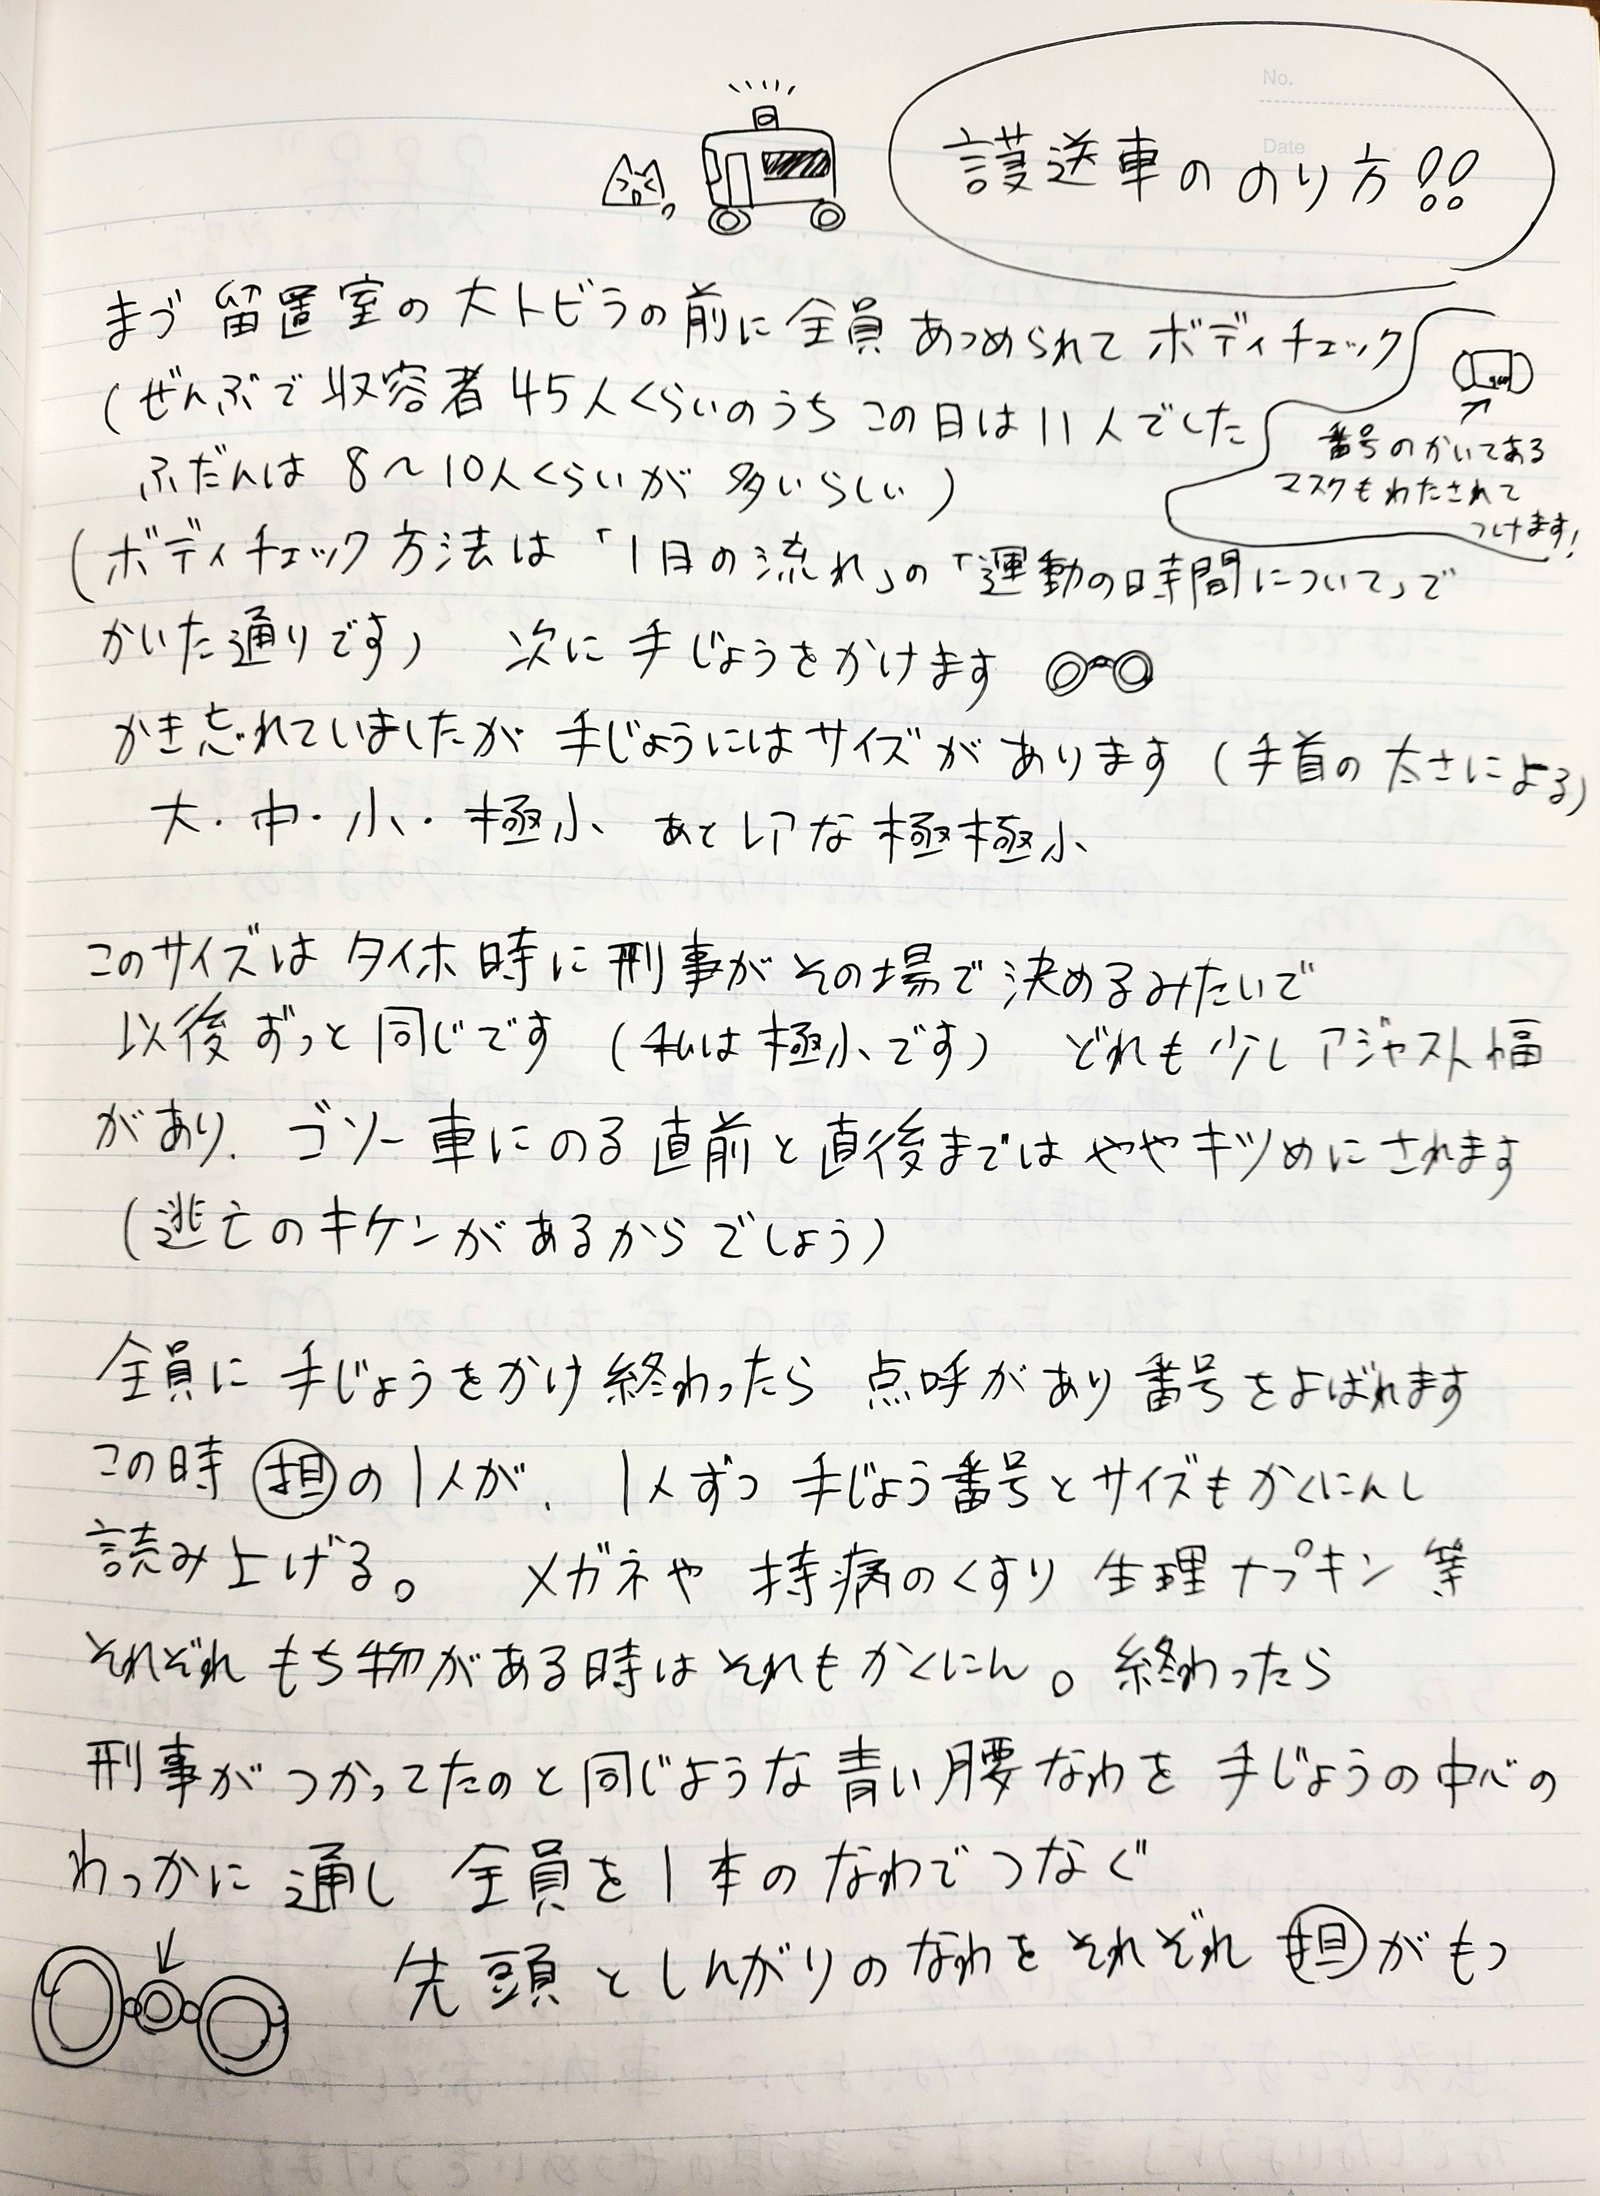 No.
Date
護送車ののり方!!
まづ 留置室の大トビラの前に全員 あつめられて ボディチェック
(ぜんぶで 収容者 45人くらいのうち この日は 11人でした
ふだんは 8〜10人くらいが 多いらしい)
番号のかいてある
マスクもわたされて
つけます!
(ボディチェック方法は「1日の流れ」の「運動の時間について」で
かいた通りです) 次に 手じょうをかけます
かき忘れていましたが 手じょうにはサイズがあります (手首の太さによる)
大・中・小・極小 あとレアな極極小
このサイズは タイホ時に刑事がその場で決めるみたいで
以後ずっと同じです (私は極小です) どれも少しアジャスト幅
があり、ゴソー車にのる直前と直後まではややキツめにされます
(逃亡のキケンがあるからでしょう)
全員に 手じょうをかけ終わったら 点呼があり番号をよばれます
この時 担の1人が、1人ずつ 手じょう番号とサイズもかくにんし
読み上げる。 メガネや 持病のくすり 生理ナプキン等
それぞれ もち物がある時はそれもかくにん。終わったら
刑事がつかってたのと同じような青い腰なわを 手じょうの中心の
わっかに通し 全員を1本のなわでつなぐ
先頭としんがりのなわをそれぞれ 担がもつ